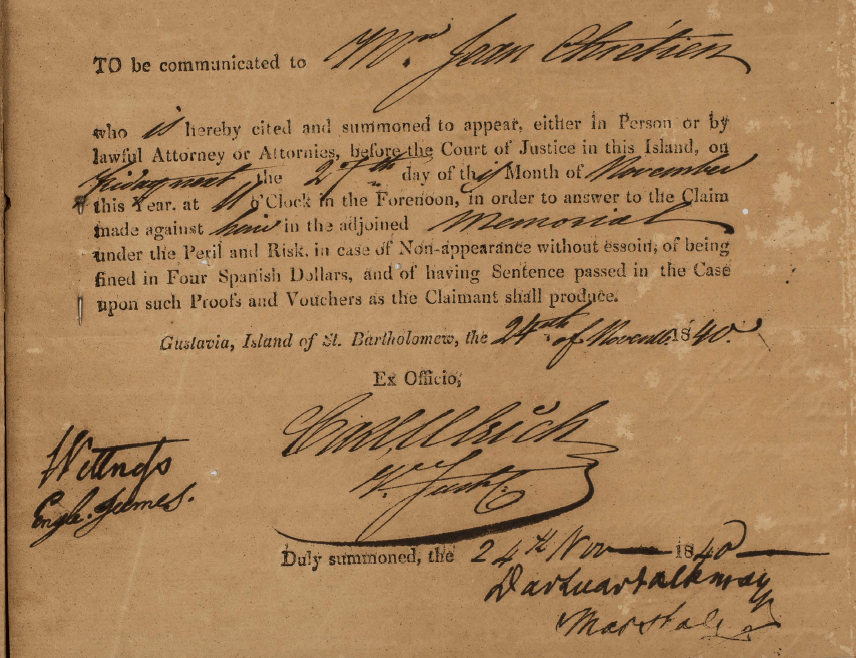 TO be communicated to Mr. Jean Chrétien
who is hereby cited and summoned to appear, either in Person or by
lawful Attorney or Attornies, before the Court of Justice in this Island, on
Friday next the 27th day of this Month of November
this Year. at 11 o'Clock in the Forenoon, in order to answer to the Claim
made against him in the adjoined Memorial
under the Peril and Risk. in case of Non-appearance without essoin, of being
fined in Four Spanish Dollars, and of having Sentence passed in the Case
upon such Proofs and Vouchers as the Claimant shall produce.
Gustavia, Island of St. Bartholomew, the 24th of Novemb. 1840.
Ex Officio,
Carl Ulrich
Wittness
Duly summoned, the 24th Nov 1840
Marshal